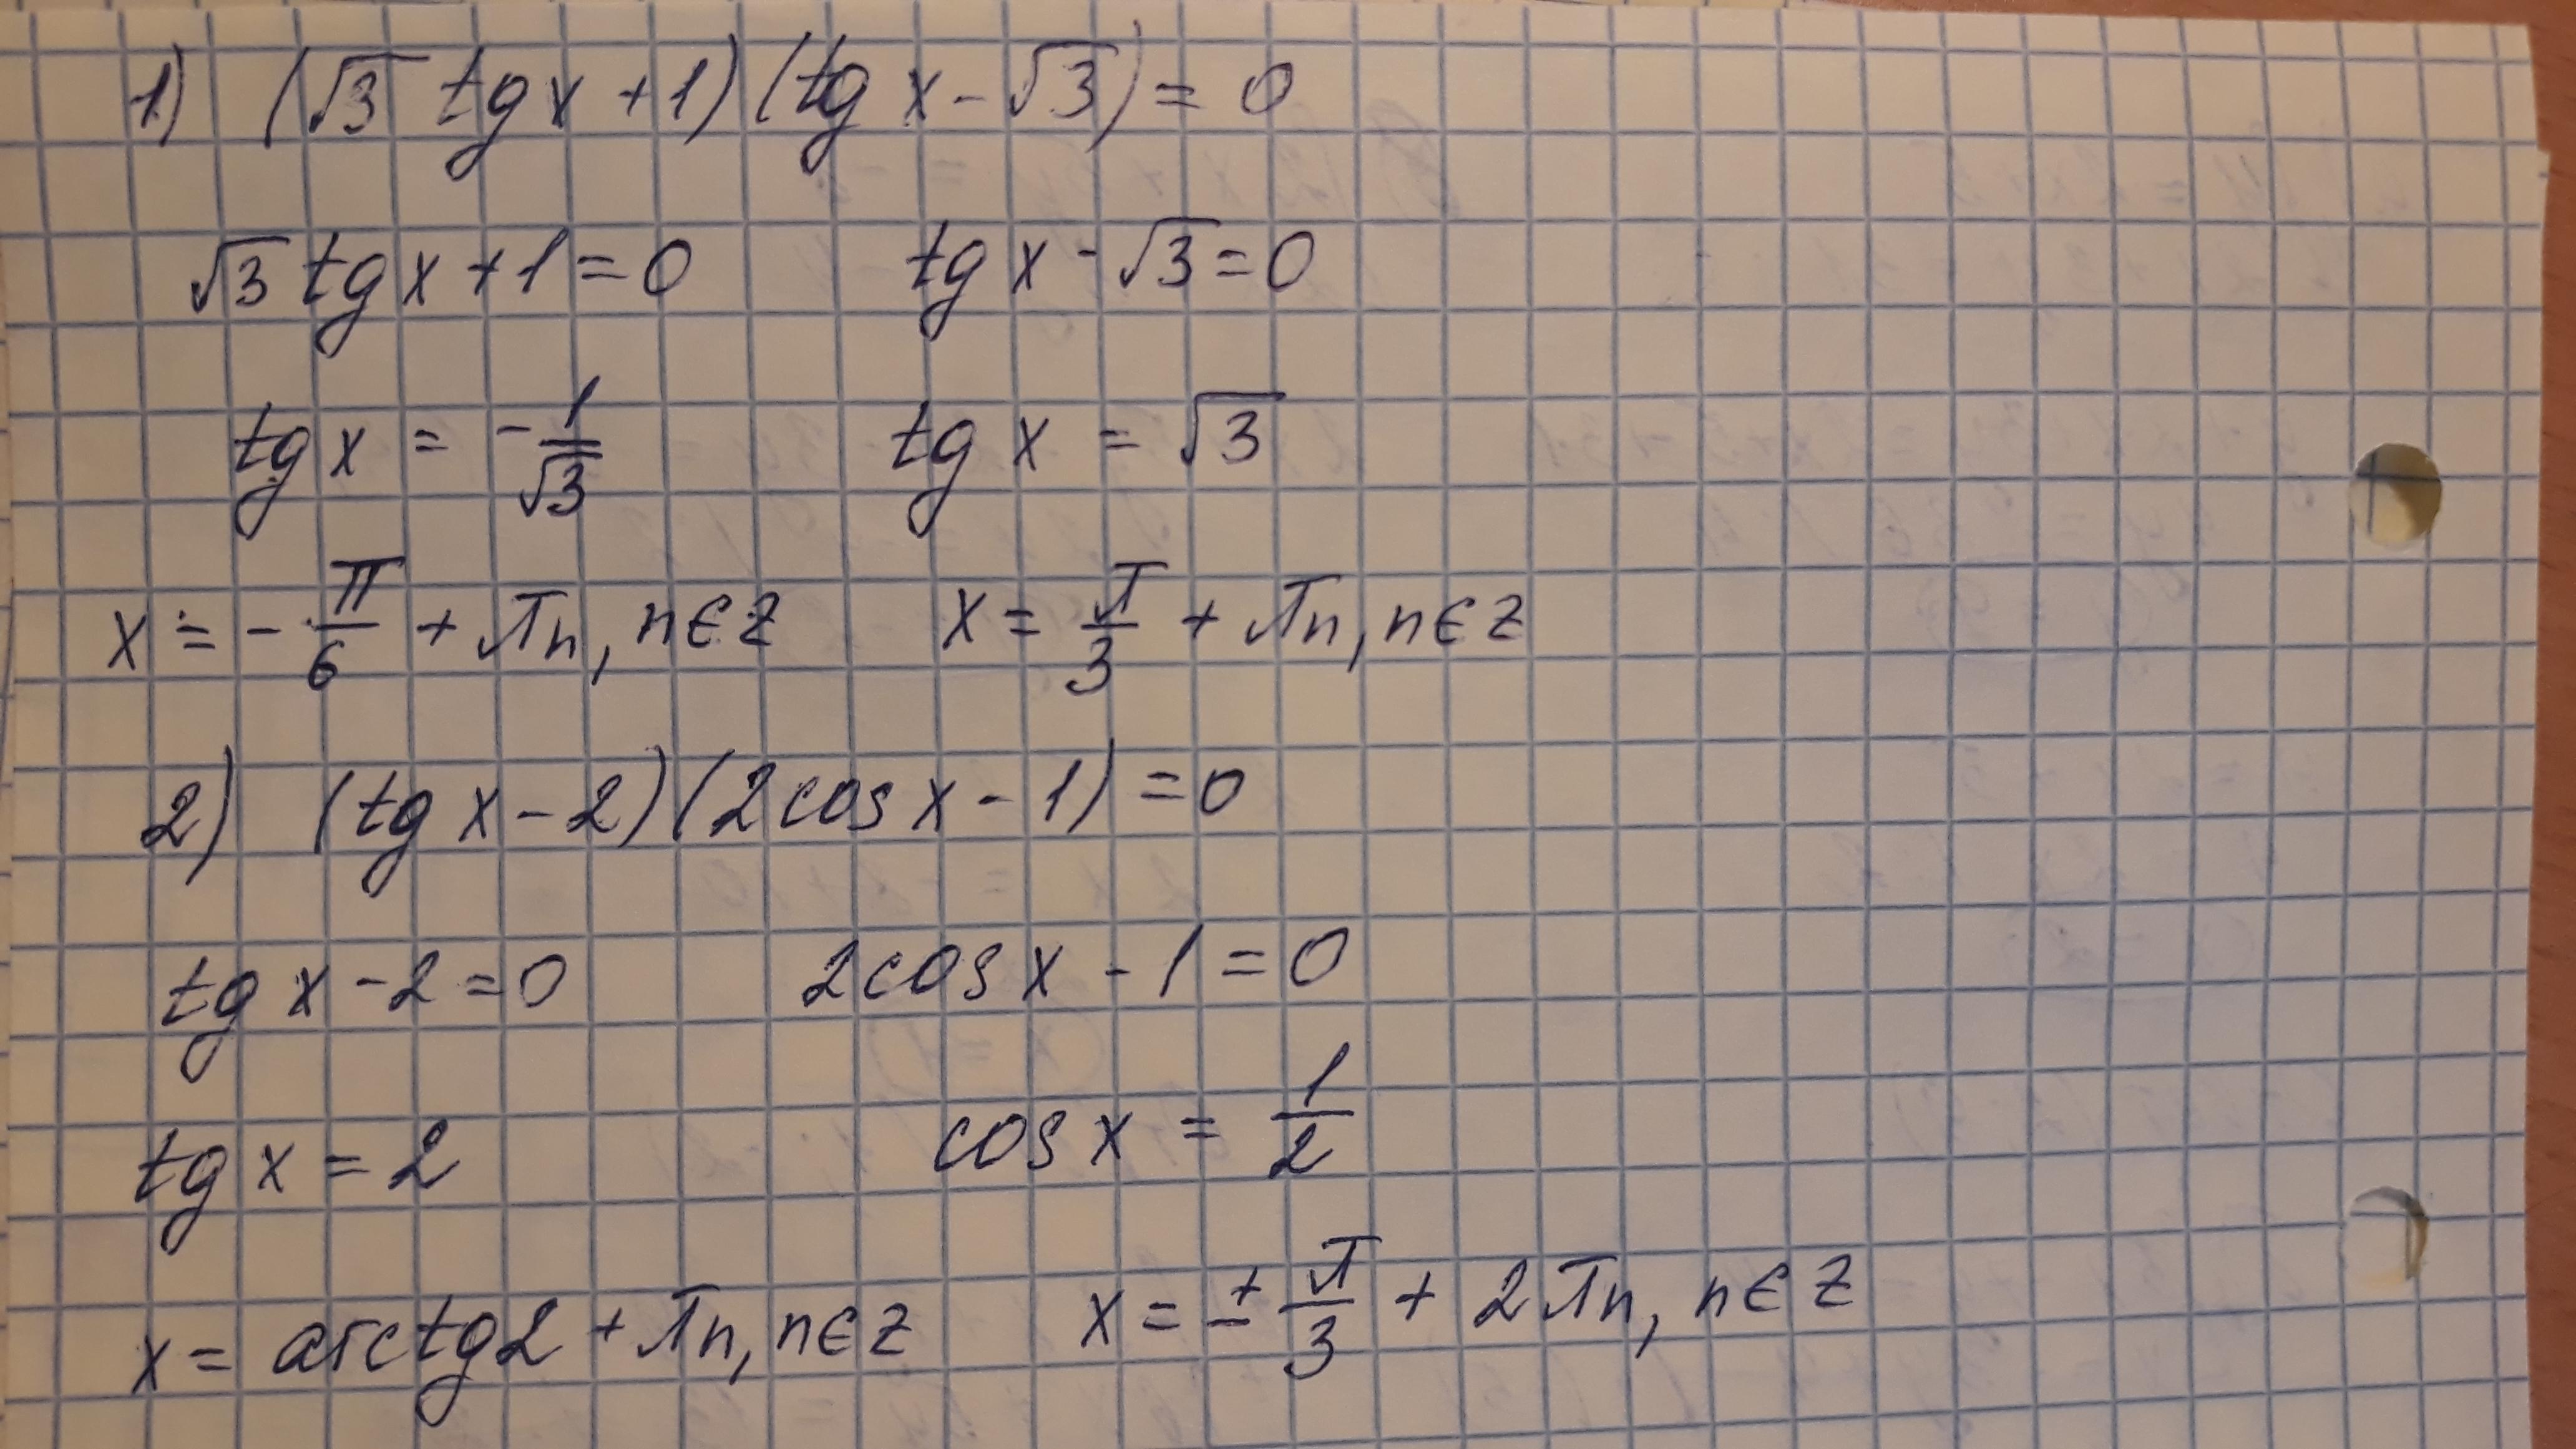 1) (√3 tg x + 1) (tg x - √3) = 0
√3 tg x + 1 = 0 tg x - √3 = 0
tg x = - 1/√3 tg x = √3
x = - π/6 + πn, n ∈ Z x = π/3 + πn, n ∈ Z
2) (tg x - 2) (2 cos x - 1) = 0
tg x - 2 = 0 2 cos x - 1 = 0
tg x = 2 cos x = 1/2
x = arctg 2 + πn, n ∈ Z x = ± π/3 + 2πn, n ∈ Z